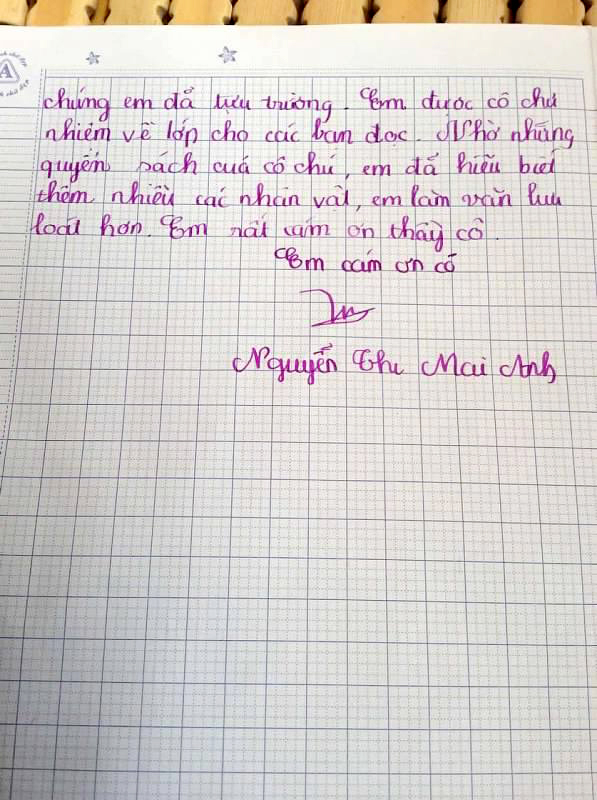 chúng em đã tựu trường. Em được cô chủ
nhiệm về lớp cho các bạn đọc. Nhờ những
quyển sách cuả cô chú, em đã hiểu biết
thêm nhiều các nhân vật, em làm văn lưu
loát hơn. Em rất cám ơn thầy cô.
Em cám ơn cô
Nguyễn Thị Mai Anh